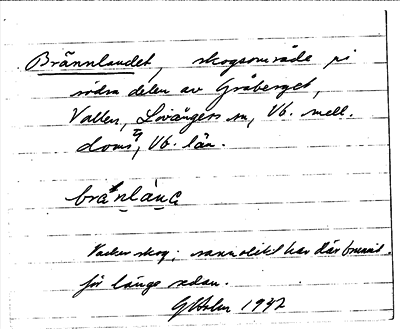 Brännlandet, skogsområde på
södra delen av Gråberget,
Vallen, Lövångers sn, Vb. mell.
doms, Vb. län.
bränlànɑ
Vacker skog; sannolikt har där brunnit
för länge sedan.
G Holm 1942